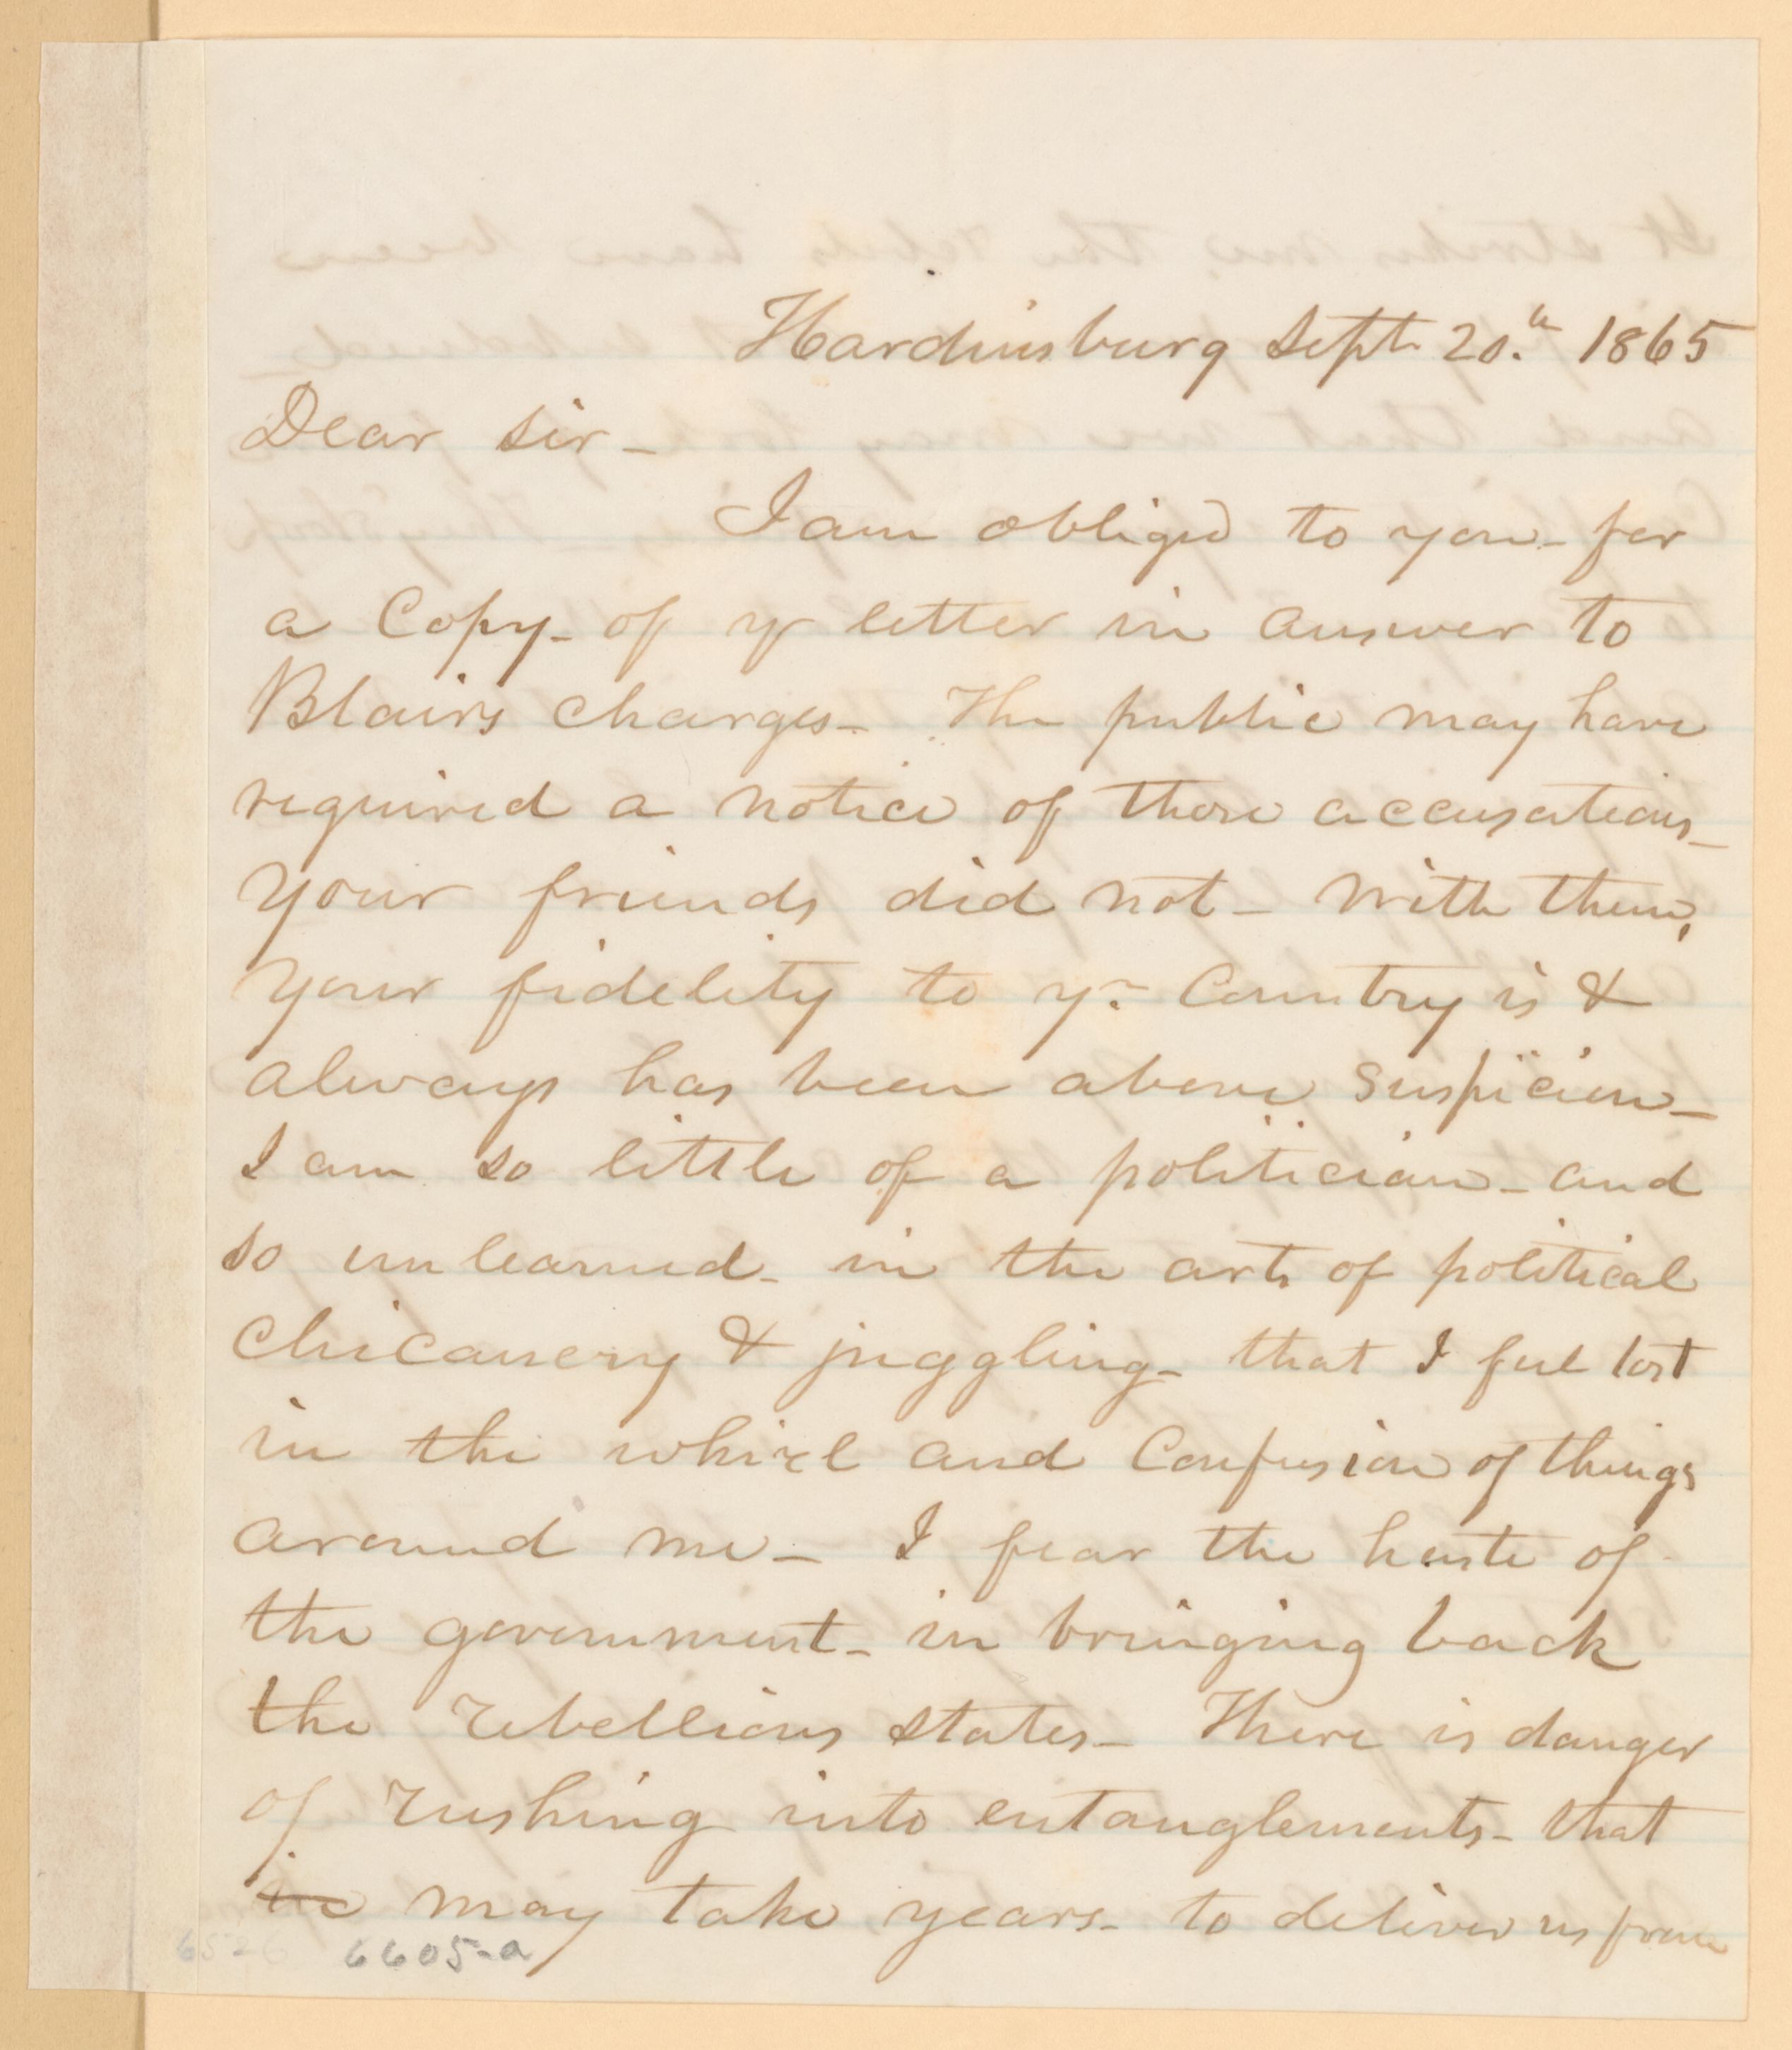 Hardinsburg Sept 20.th 1865
Dear Sir -
I am obliged to you - for
a Copy - of yr letter in answer to
Blairs charges - The public may have
required a notice of those accusations -
Your friends did not - With them,
your fidelity to yr. Country is &
always has been above suspicion -
I am so little of a politician - and
so unlearned - in the arts of political
chicanery & juggling - that I feel lost
in the whirl and Confusion of things
around me - I fear the haste of
the government - in bringing back
the rebellious states - There is danger
of rushing into entanglements - that
may take years - to deliver us from
6526 6605-a